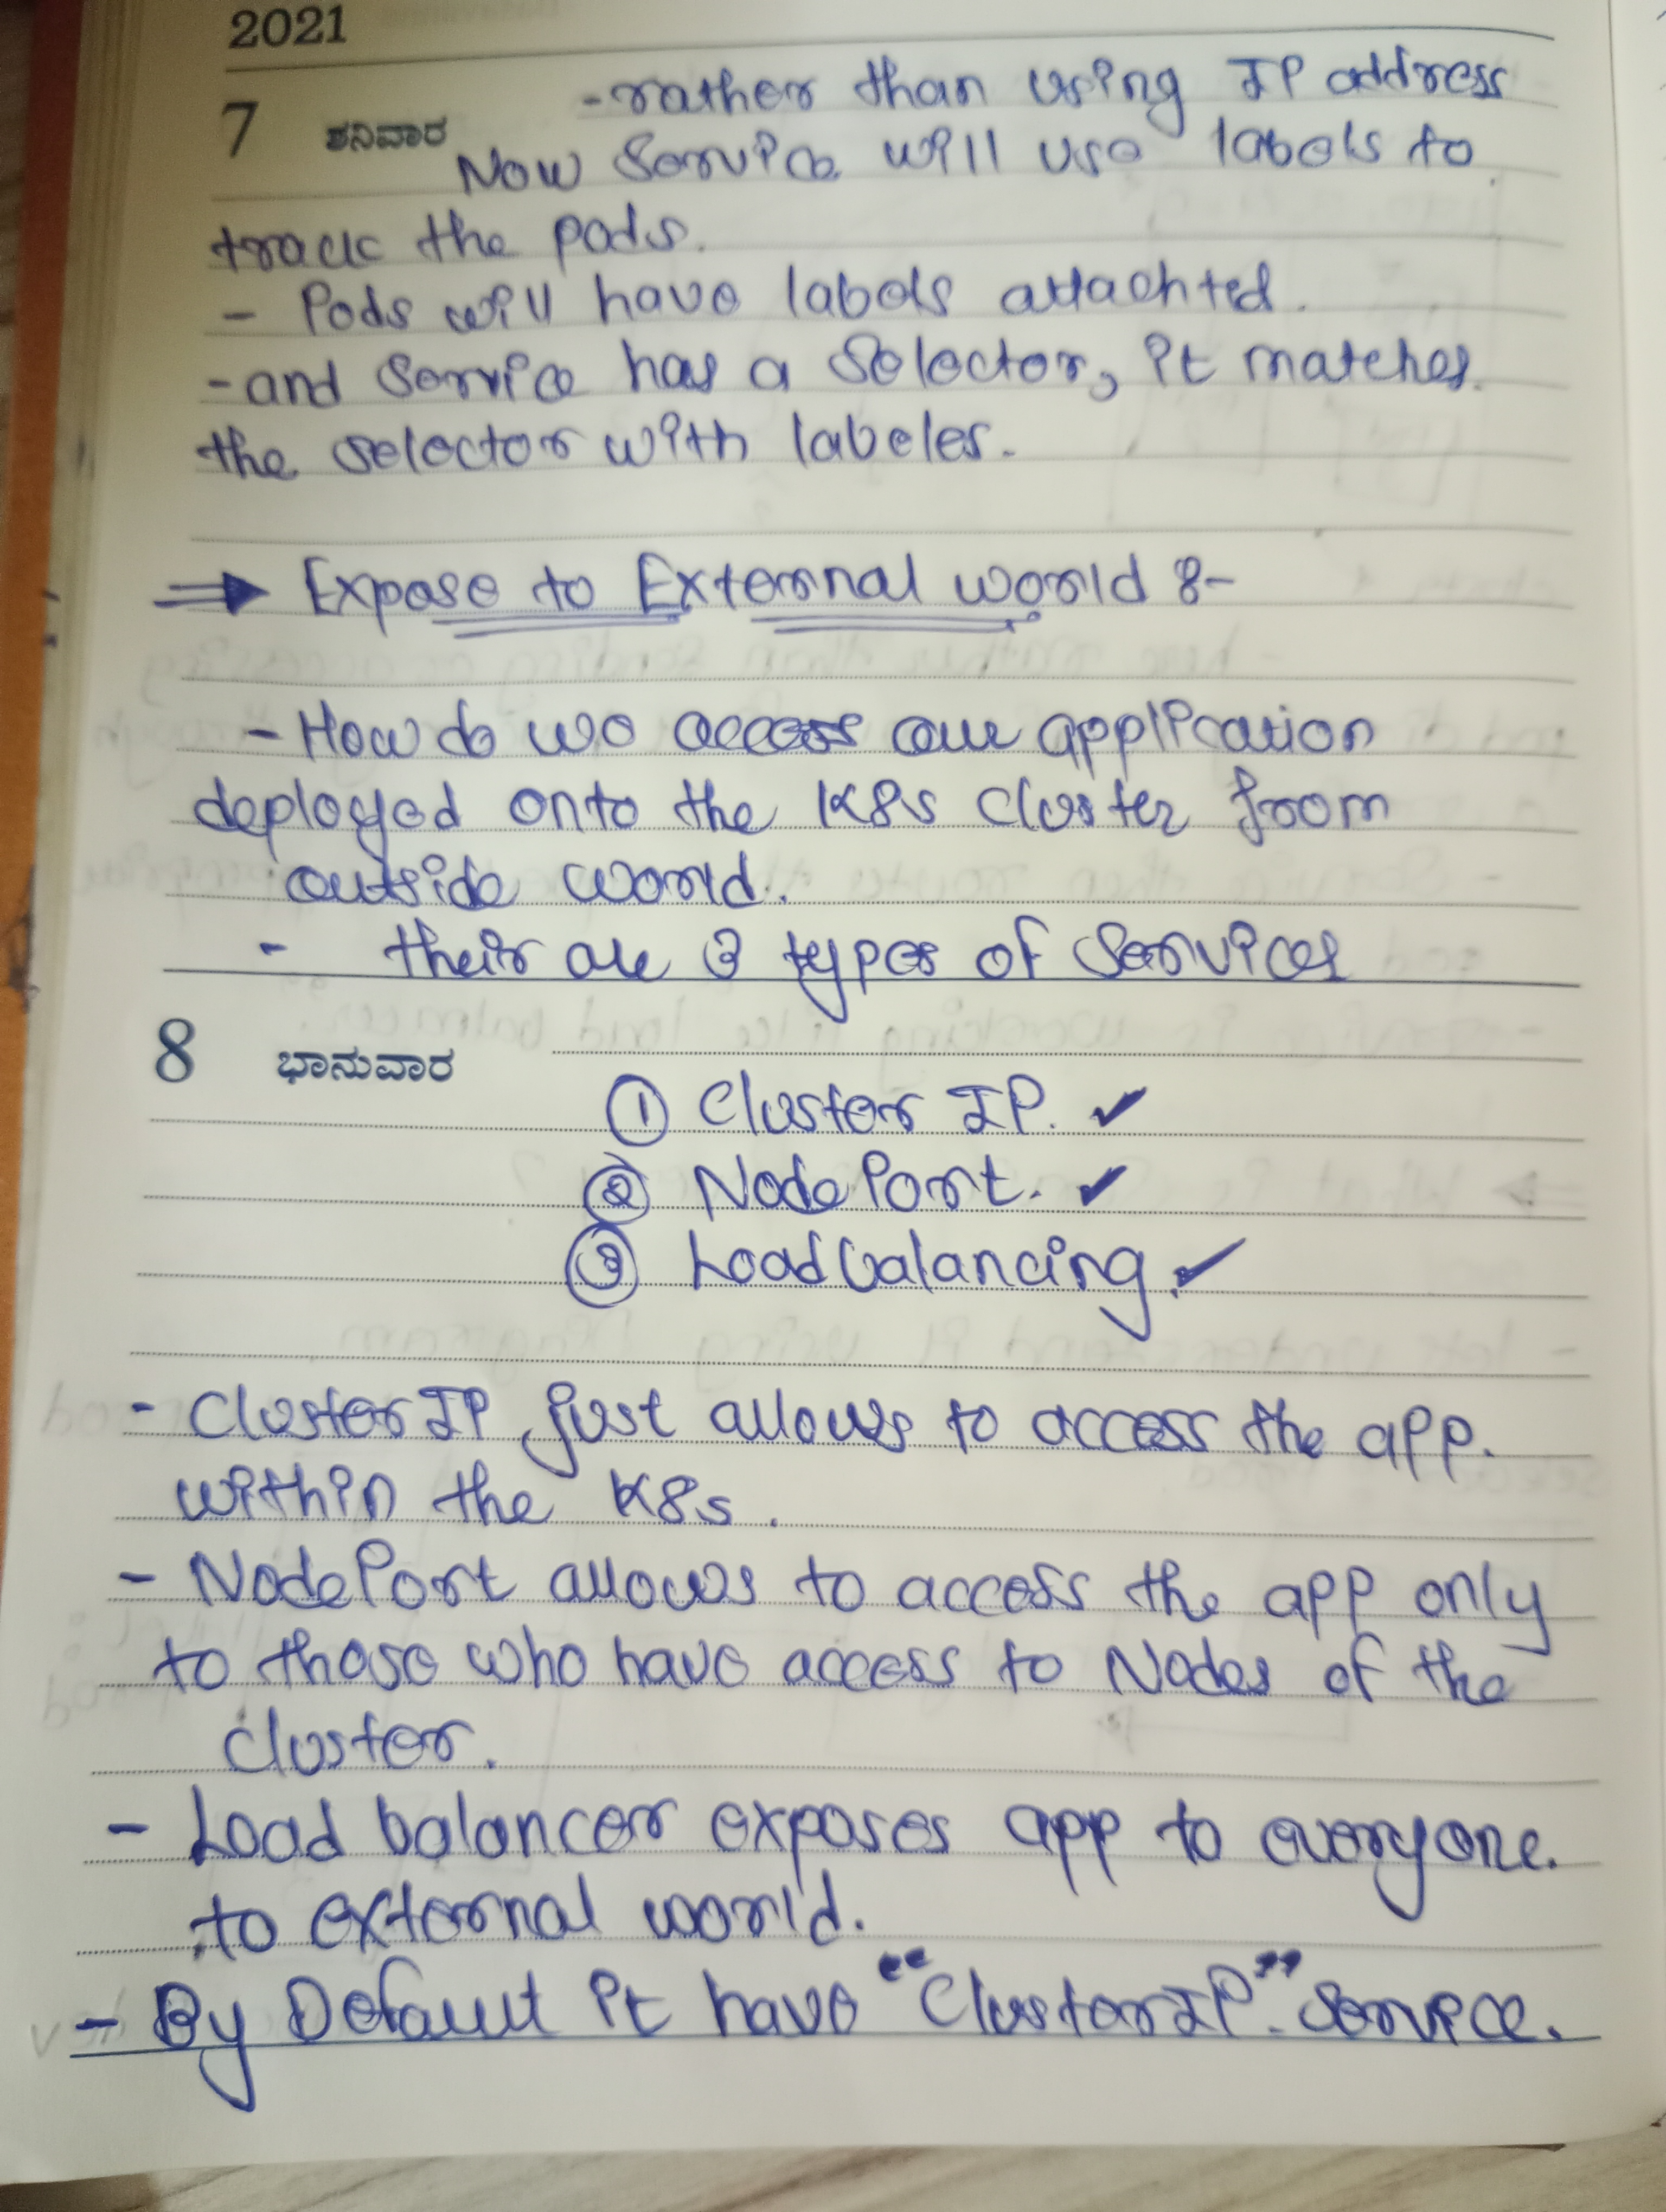 2021
7 ಶನಿವಾರ -rather than using IP address
Now Service will use labels to
track the pods.
- Pods will have labels attachted.
- and Service has a Selector, it matches.
the selector with labeles.
⇒ Expose to External world :-
- How do we access our application
deployed onto the K8s Cluster from
outside world.
- their are 3 types of Services
8 ಭಾನುವಾರ
① Cluster IP. ✓
② NodePort. ✓
③ Loadbalancing. ✓
- ClusterIP just allows to access the app.
within the K8s.
- NodePort allows to access the app only
to those who have access to Nodes of the
cluster.
- Load balancer exposes app to everyone.
to external world.
- By Default it have "ClusterIP". Service.